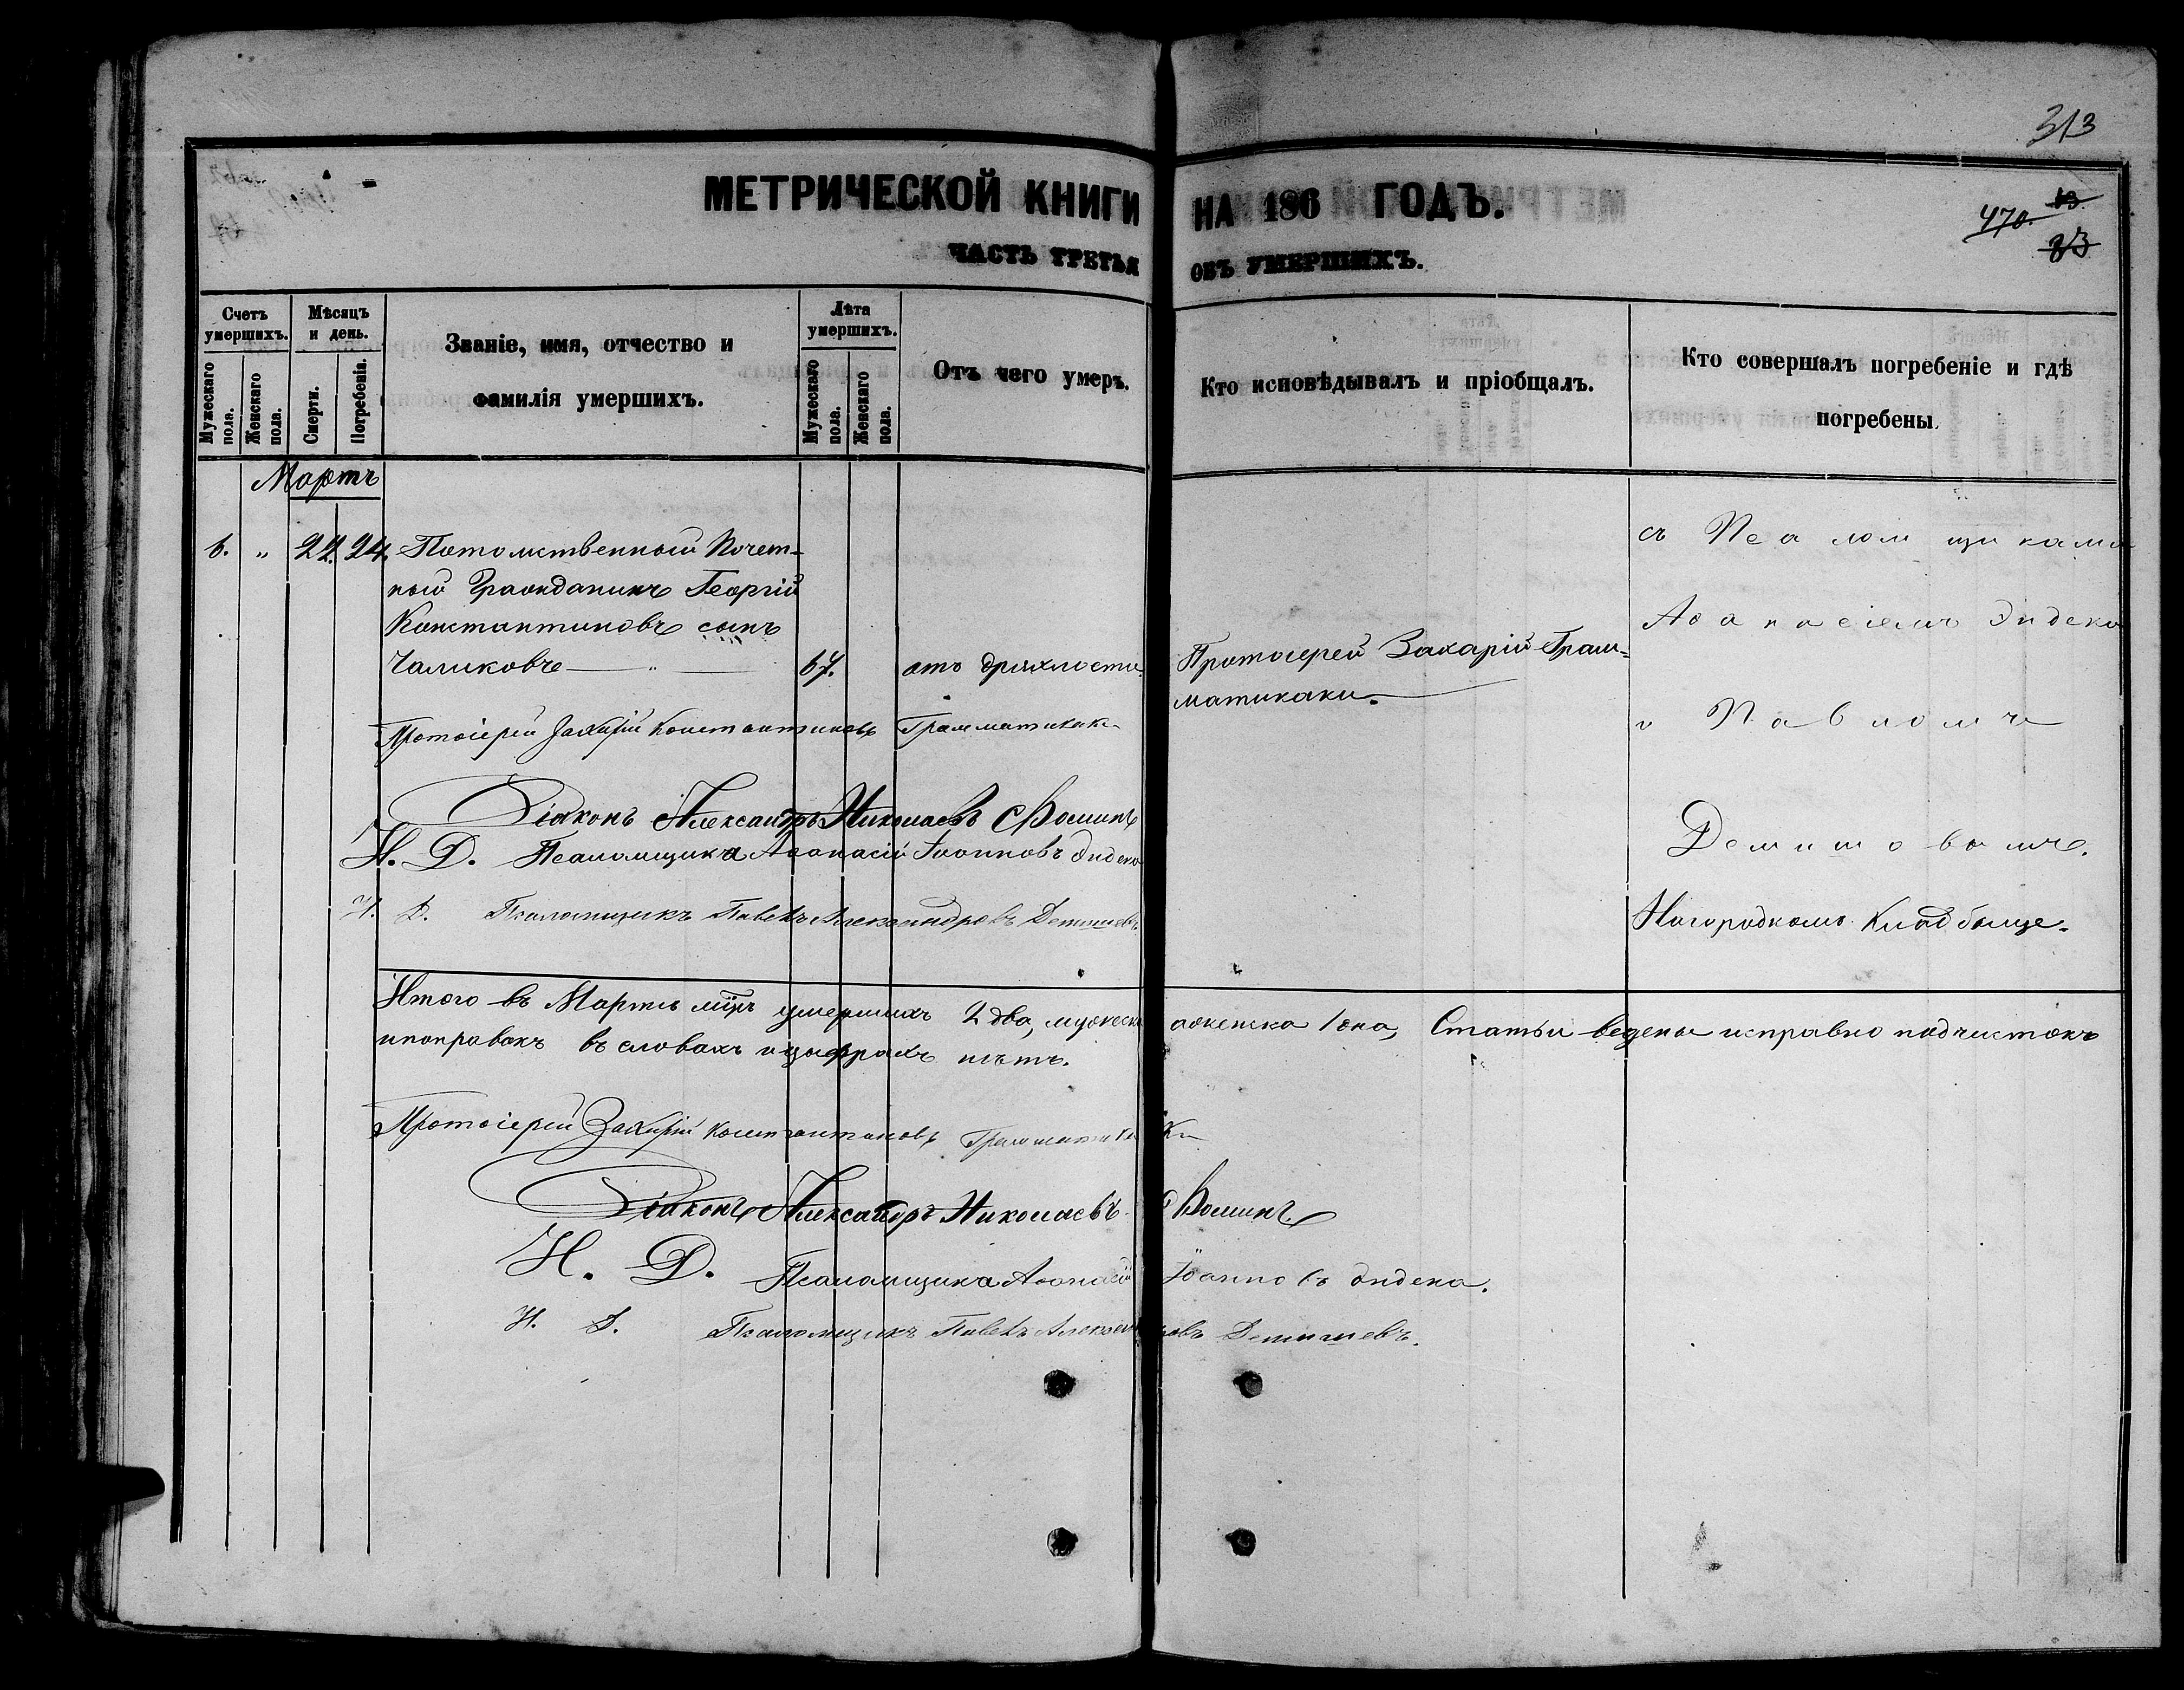 313
МЕТРИЧЕСКОЙ КНИГИ НА 186 ГОДЪ.
470. 83
ЧАСТЬ ТРЕТЬЯ ОБЪ УМЕРШИХЪ.
Счетъ умершихъ.
Мужескаго пола.
Женскаго пола.
Мѣсяцъ и день.
Смерти.
Погребенія.
Званіе, имя, отчество и
фамилія умершихъ.
Лѣта умершихъ.
Мужескаго пола.
Женскаго пола.
Отъ чего умеръ.
Кто исповѣдывалъ и пріобщалъ.
Кто совершалъ погребеніе и гдѣ
погребены.
Мартъ
6. " 22. 24. Потомственный Почет-
ный Гражданинъ Георгій
Константиновъ сынъ
Чаликовъ 67. отъ дряхлости.
Протоіерей Захарій Грам-
матикаки.
съ Псаломщиками
Аѳанасіемъ Эндека
и Павломъ
Демишовымъ.
На городкомъ Кладбище.
Протоіерей Захарій Константиновъ Грамматикаки
Діаконъ Александръ Николаевъ Ѳоминъ
И. Д. Псаломщика Аѳонасій Іоанновъ Эндека
И. Д. Псаломщикъ Павелъ Александровъ Демишевъ.
Итого въ Мартѣ мцѣ умершихъ 2 два, мужеска а женска 1 дна, Статьи ведены исправно подчистокъ
и поправокъ въ словахъ и цыфрахъ нѣтъ.
Протоіерей Захарій Константиновъ Грамматикаки
Діаконъ Александръ Николаевъ Ѳоминъ
И. Д. Псаломщика Аѳонасій Іоанновъ Эндека.
И. Д. Псаломщикъ Павелъ Александровъ Демишевъ.